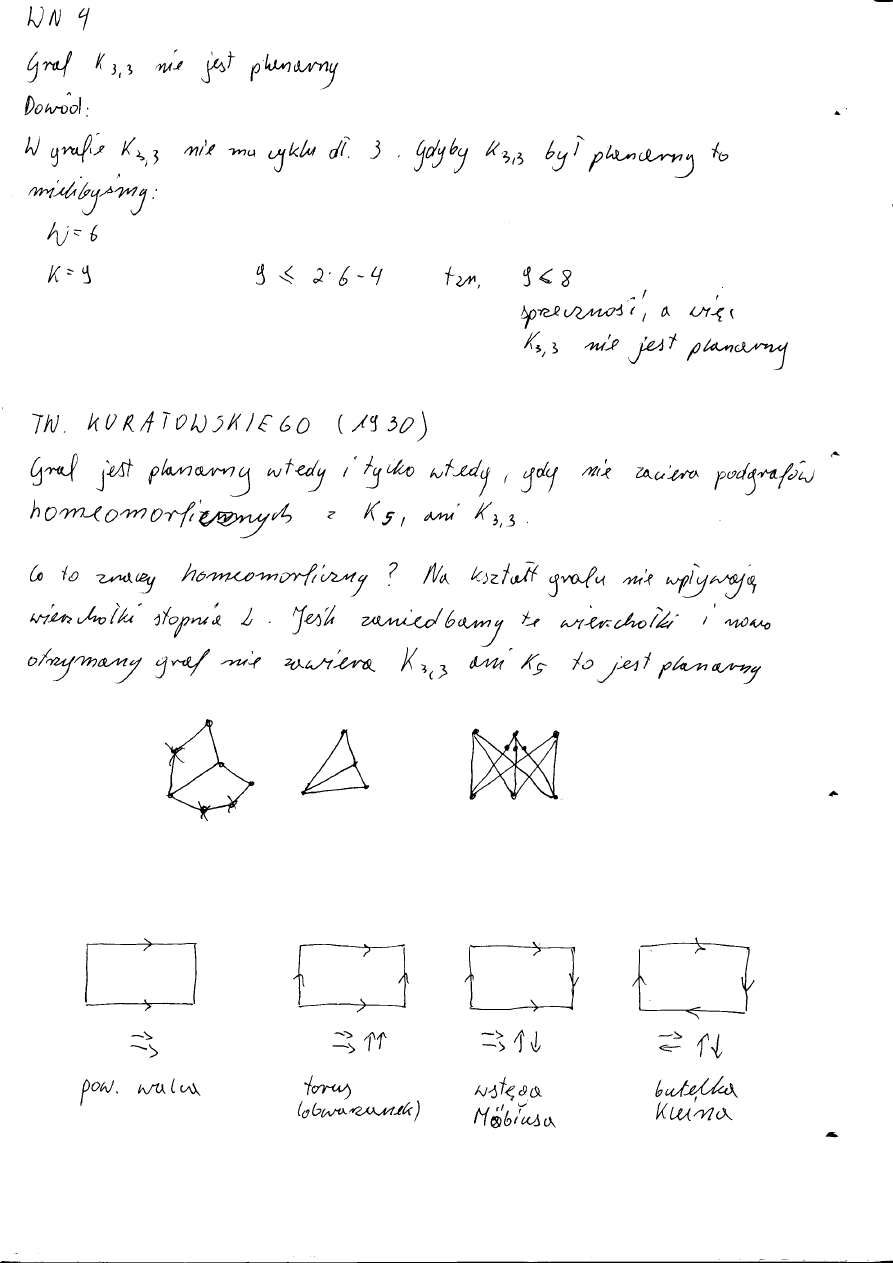 WN 4
Graf K3,3 nie jest planarny
Dowód:
W grafie K3,3 nie ma cyklu dł. 3. Gdyby K3,3 był planarny to
mielibyśmy:
W=6
K=9 9 ≤ 2·6-4 tzn, 9 ≤ 8
sprzeczność, a więc
K3,3 nie jest planarny
TW. KURATOWSKIEGO (1930)
Graf jest planarny wtedy i tylko wtedy, gdy nie zawiera podgrafów
homeomorficznych z K5, ani K3,3.
Co to znaczy homeomorficzny? Na kształt grafu nie wpływają
wierzchołki stopnia 2. Jeśli zaniedbamy te wierzchołki i nowo
otrzymany graf nie zawiera K3,3 ani K5 to jest planarny
⇉ ⇉ ↑↑ ⇉ ↑↓ ⇄ ↑↓
pow. walca torus wstęga butelka
(obwarzanek) Möbiusa Kleina